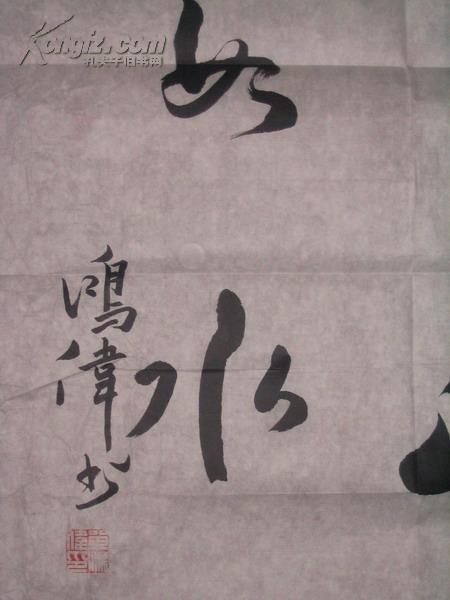 Kongfz.com
孔夫子旧书网
如水
鴻偉书